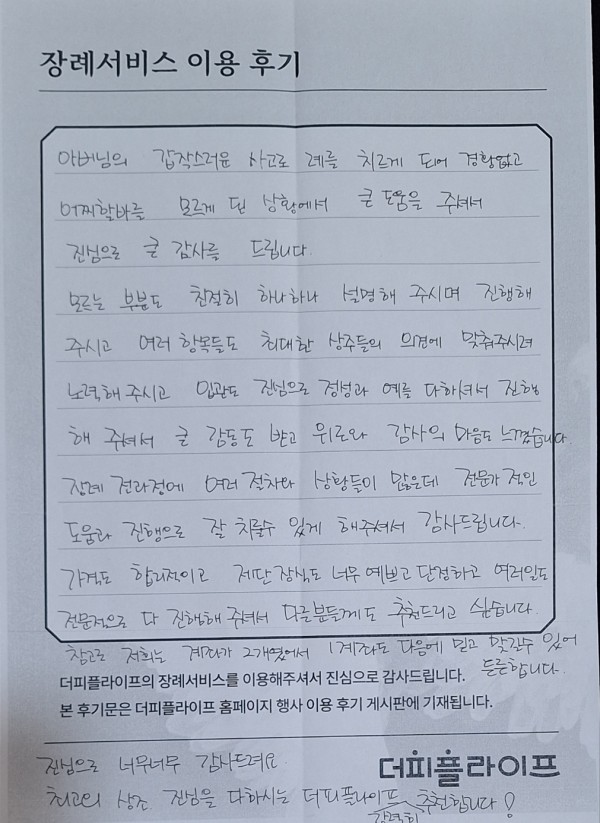 장례서비스 이용 후기
아버님의 갑작스러운 사고로 례를 치르게 되어 경황없고
어찌할바를 모르게 된 상황에서 큰 도움을 주셔서
진심으로 큰 감사를 드립니다.
모르는 부분도 친절히 하나하나 설명해 주시며 진행해
주시고 여러 항목들도 최대한 상주들의 의견에 맞춰주시려
노력해 주시고 입관도 진심으로 정성과 예를 다하셔서 진행
해 주셔서 큰 감동도 받고 위로와 감사의 마음도 느꼈습니다.
장례 전과정에 여러 절차와 상황들이 많은데 전문가 적인
도움과 진행으로 잘 치를수 있게 해주셔서 감사드립니다.
가격도 합리적이고 제단 장식도 너무 예쁘고 단정하고 여러일도
전문적으로 다 진행해 주셔서 다른분들께도 추천드리고 싶습니다.
참고로 저희는 계좌가 2개였어서 1계좌도 다음에 믿고 맞길수 있어
든든합니다.
더피플라이프의 장례서비스를 이용해주셔서 진심으로 감사드립니다.
본 후기문은 더피플라이프 홈페이지 행사 이용 후기 게시판에 기재됩니다.
진심으로 너무너무 감사드려요
더피플라이프
최고의 상조 진심을 다하시는 더피플라이프 강력히 추천합니다!